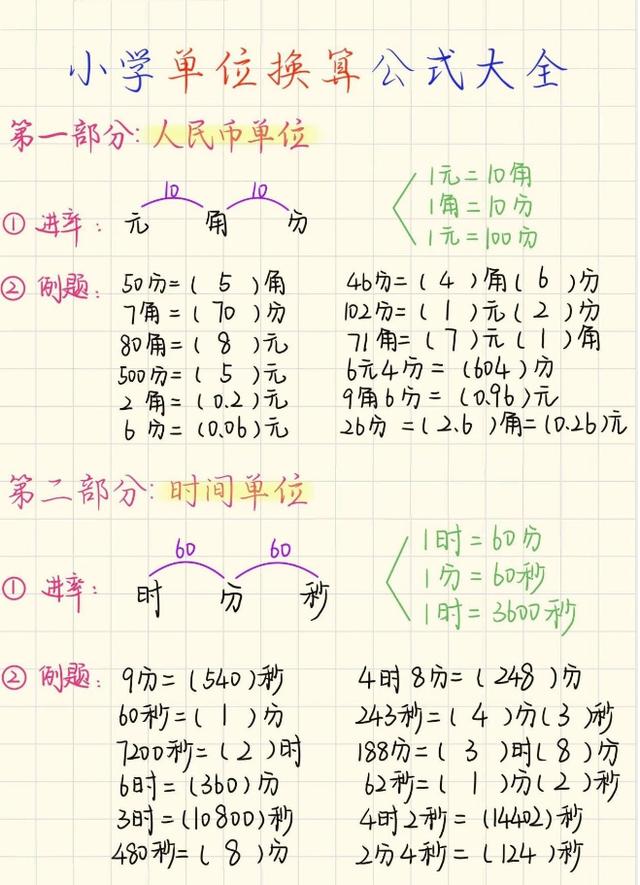 小学单位换算公式大全
第一部分: 人民币单位
① 进率: 元 10 角 10 分
1元=10角
1角=10分
1元=100分
② 例题:
50分=( 5 )角
7角=( 70 )分
80角=( 8 )元
500分=( 5 )元
2角=(0.2)元
6分=(0.06)元
46分=( 4 )角( 6 )分
102分=( 1 )元( 2 )分
71角=( 7 )元( 1 )角
6元4分=(604)分
9角6分=(0.96)元
26分=(2.6)角=(0.26)元
第二部分: 时间单位
① 进率: 时 60 分 60 秒
1时=60分
1分=60秒
1时=3600秒
② 例题:
9分=(540)秒
60秒=( 1 )分
7200秒=( 2 )时
6时=(360)分
3时=(10800)秒
480秒=( 8 )分
4时8分=( 248 )分
243秒=( 4 )分( 3 )秒
188分=( 3 )时( 8 )分
62秒=( 1 )分( 2 )秒
4时2秒=(14402)秒
2分4秒=(124)秒